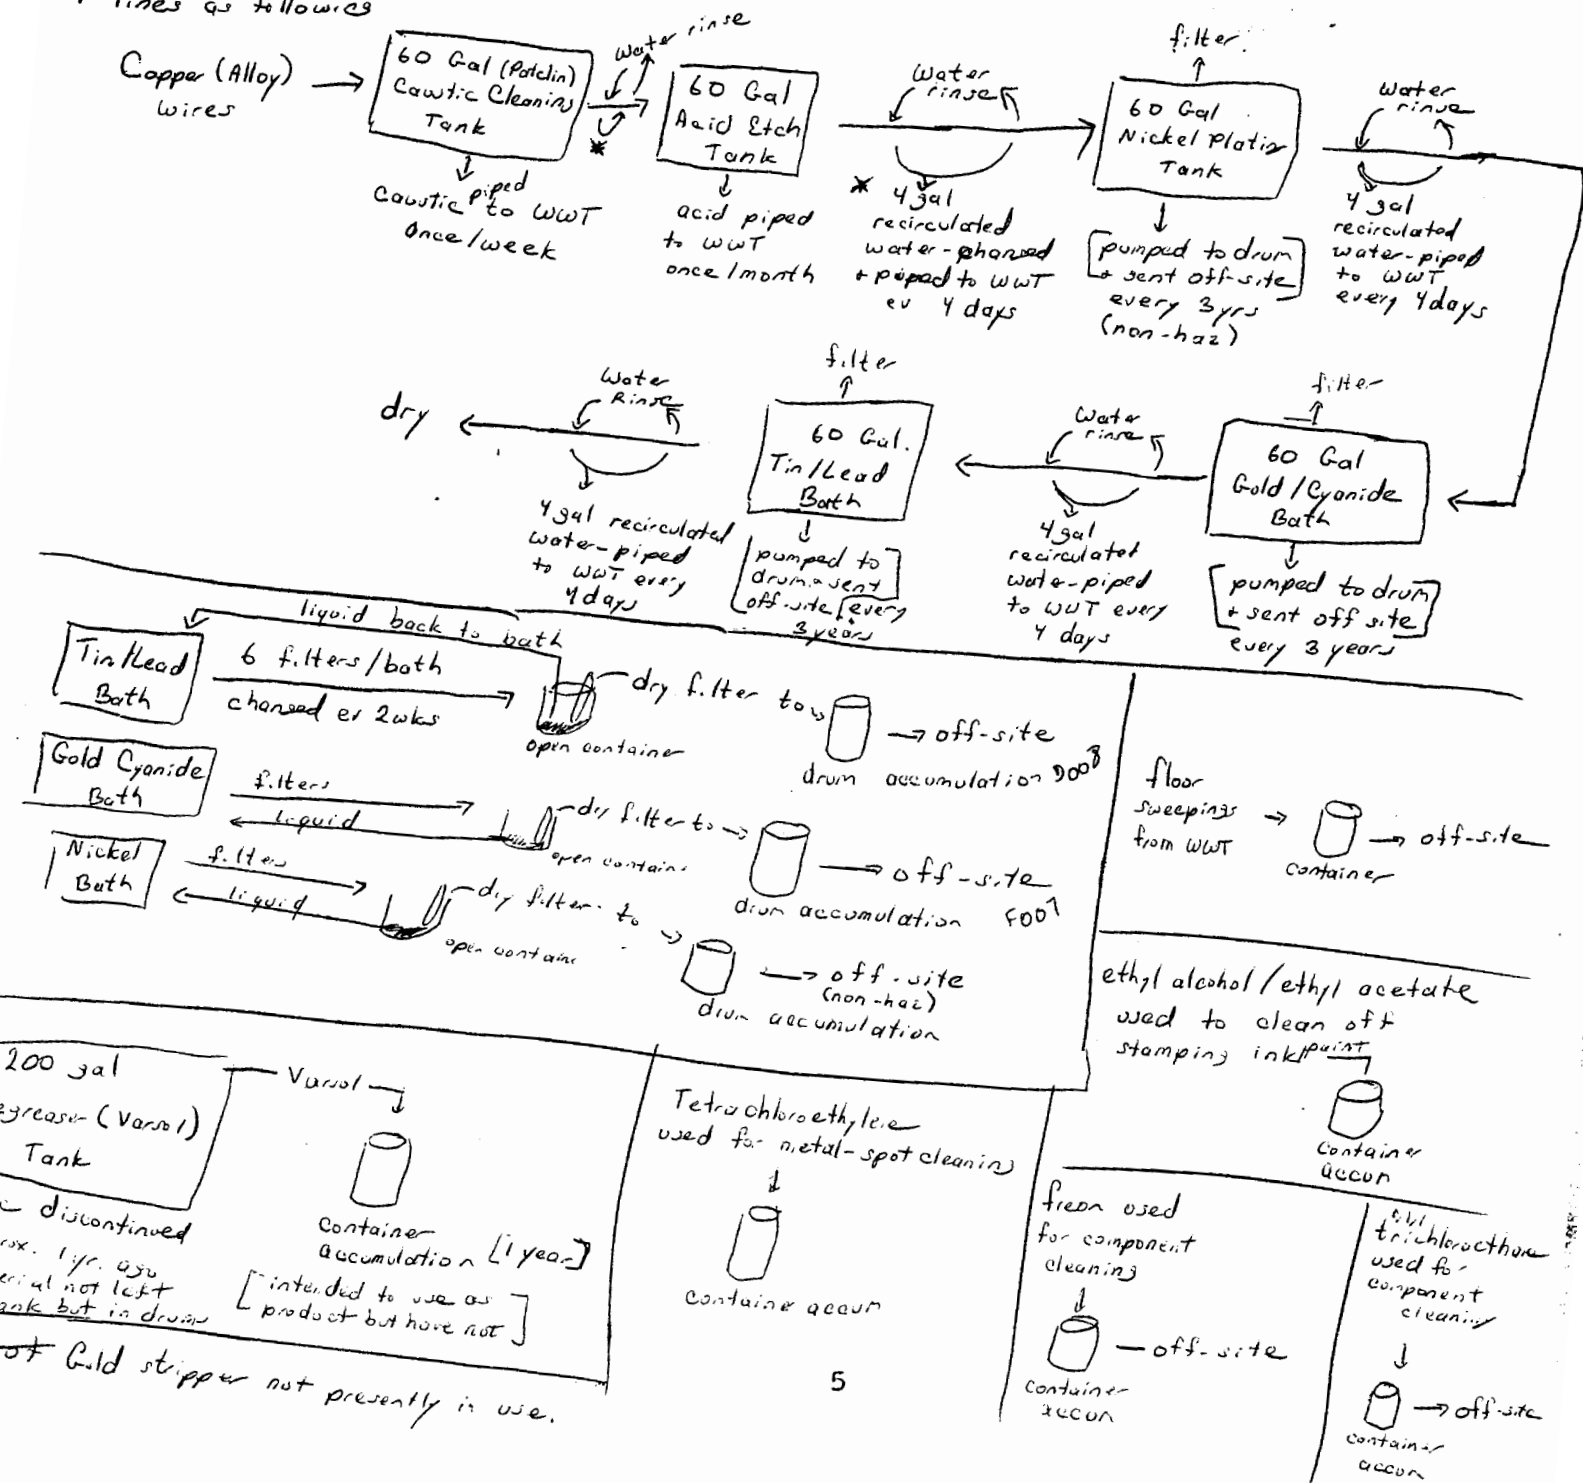 lines as followics
Copper (Alloy)
wires
60 Gal (Patclin)
Caustic Cleaning
Tank
water rinse
*
Caustic piped to WWT
Once/week
60 Gal
Acid Etch
Tank
acid piped
to WWT
once/month
Water
rinse
* 4 gal
recirculated
water-changed
+ piped to WWT
ev 4 days
filter
60 Gal
Nickel Plating
Tank
[pumped to drum
+ sent off-site]
every 3 yrs
(non-haz)
Water
rinse
4 gal
recirculated
water-piped
to WWT
every 4 days
filter
60 Gal
Gold/Cyanide
Bath
[pumped to drum
+ sent off site]
every 3 years
Water
rinse
4 gal
recirculated
water-piped
to WWT every
4 days
filter
60 Gal.
Tin/Lead
Bath
[pumped to
drum + sent
off-site] every
3 years
Water
Rinse
4 gal recirculated
water-piped
to WWT every
4 days
dry
liquid back to bath
Tin/Lead
Bath
6 filters/bath
changed ev 2wks
open container
dry filter to
drum accumulation D008
off-site
Gold Cyanide
Bath
filters
liquid
open contain
dry filter to
off-site
drum accumulation F007
Nickel
Bath
filters
liquid
open contain
dry filter to
off-site
(non-haz)
drum accumulation
floor
sweepings
from WWT
container
off-site
ethyl alcohol/ethyl acetate
used to clean off
stamping ink/paint
container
accum
200 gal
egreaser (Varsol)
Tank
discontinued
rox. 1 yr. ago
erial not left
ank but in drums
Varsol
container
accumulation [1 year]
[intended to use as
product but have not]
Tetrachloroethylene
used for metal-spot cleaning
container accum
freon used
for component
cleaning
off-site
container
accum
trichloroethane
used for
component
cleaning
off-site
container
accum
Gold stripper not presently in use.
5